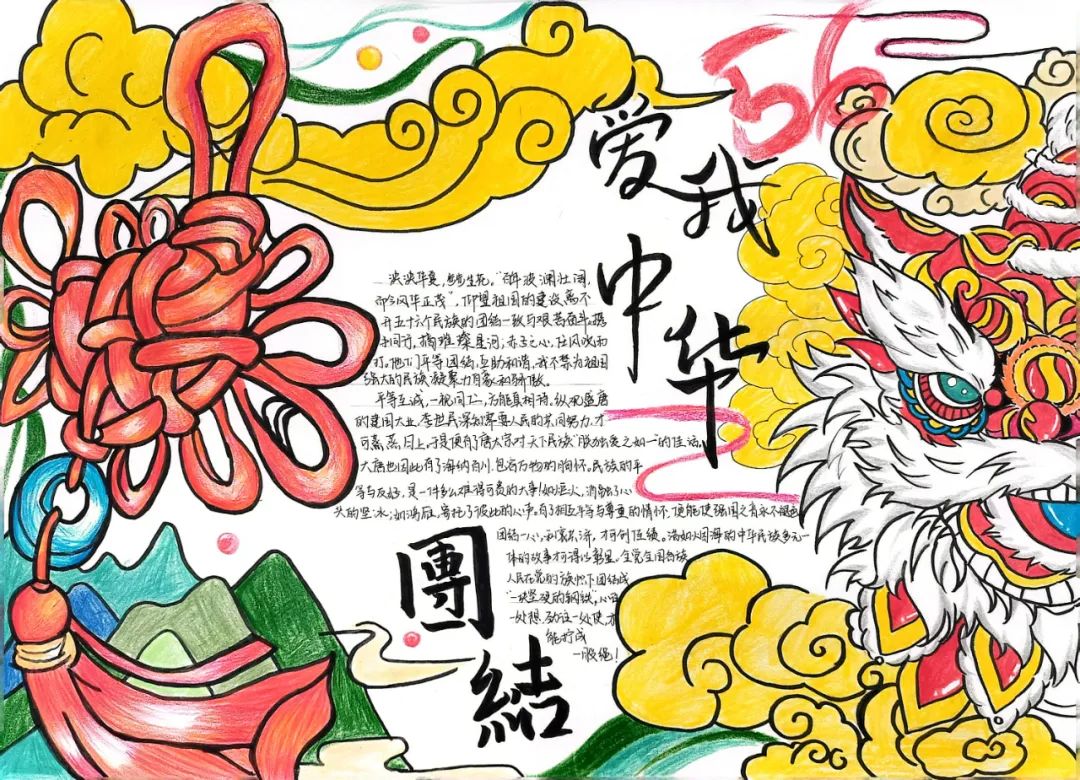 56
爱我
中华
泱泱华夏,步步生花。"百年波澜壮阔,
百年风华正茂",仰望祖国的建设离不
开五十六个民族的团结一致与艰苦奋斗。携
手同行,璀璨星河;赤子之心,任风吹雨
打。他们平等团结,互助和谐,我不禁为祖国
强大的民族凝聚力自豪和骄傲。
平等互诚,一视同仁,方能臭相诗。纵观盛唐
的建国大业,李世民深知需要人民的共同努力,才
可蒸蒸日上,于是便有了唐太宗对天下民族"朕独爱之如一"的佳话。
大唐也因此有了海纳百川,包容万物的胸怀。民族的平
等与友好,是一件多么难得可贵的大事!如炬火,消融了心
头的坚冰;如鸿雁,寄托了彼此的心声。有了相互平等与尊重的情怀,便能使强国之音永不褪色
团结一心,和衷共济,才可创佳绩。浩如烟海的中华民族多元一
体的故事才得以彰显。全党全国各族
人民在党的旗帜下团结成
"一块坚硬的钢铁",心往
一处想,劲往一处使,才
能拧成
一股绳!
團
結